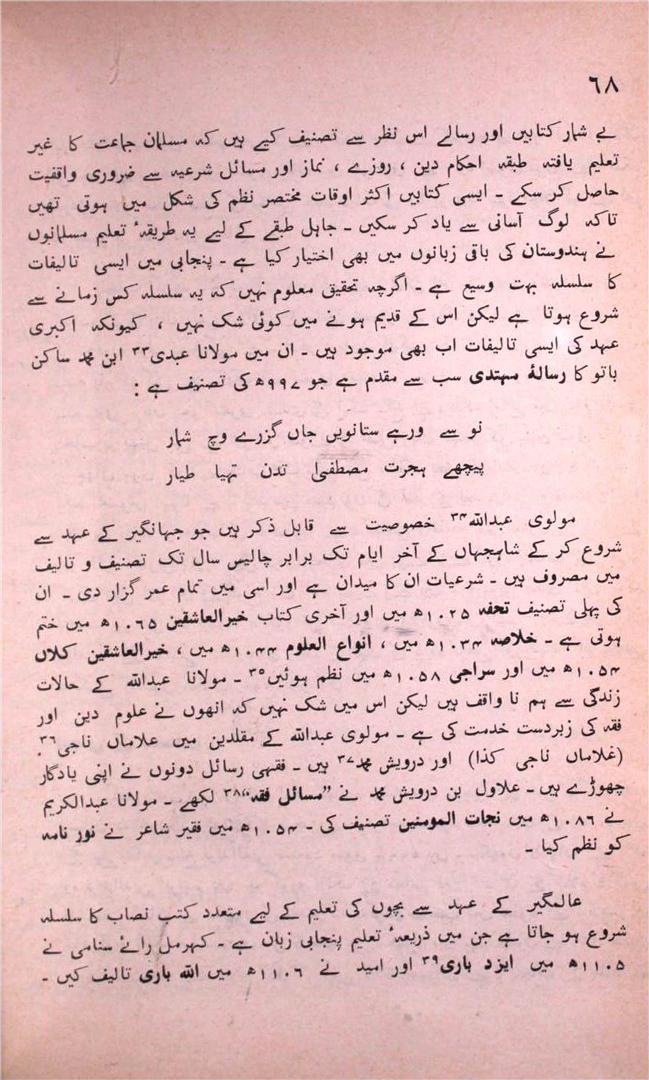 ٦٨
بے شمار کتابیں اور رسالے اس نظر سے تصنیف کیے ہیں کہ مسلمان جماعت کا غیر
تعلیم یافتہ طبقہ احکام دین ، روزے ، نماز اور مسائل شرعیہ سے ضروری واقفیت
حاصل کر سکے ۔ ایسی کتابیں اکثر اوقات مختصر نظم کی شکل میں ہوتی تھیں
تاکہ لوگ آسانی سے یاد کر سکیں ۔ جاہل طبقے کے لیے یہ طریقۂ تعلیم مسلمانوں
نے ہندوستان کی باقی زبانوں میں بھی اختیار کیا ہے ۔ پنجابی میں ایسی تالیفات
کا سلسلہ بہت وسیع ہے ۔ اگرچہ تحقیق معلوم نہیں کہ یہ سلسلہ کس زمانے سے
شروع ہوتا ہے لیکن اس کے قدیم ہونے میں کوئی شک نہیں ، کیونکہ اکبری
عہد کی ایسی تالیفات اب بھی موجود ہیں ۔ ان میں مولانا عبدی۳۳ ابن محمد ساکن
باتو کا رسالۂ مہتدی سب سے مقدم ہے جو ۹۹۷ھ کی تصنیف ہے :
نو سے ورہے ستانویں جاں گزرے وچ شمار
پیچھے ہجرت مصطفیٰ تدن تہیا طیار
مولوی عبداللہ۳۴ خصوصیت سے قابل ذکر ہیں جو جہانگیر کے عہد سے
شروع کر کے شاہجہاں کے آخر ایام تک برابر چالیس سال تک تصنیف و تالیف
میں مصروف ہیں ۔ شرعیات ان کا میدان ہے اور اسی میں تمام عمر گزار دی ۔ ان
کی پہلی تصنیف تحفہ ۱۰۲۵ھ میں اور آخری کتاب خیرالعاشقین ۱۰۶۵ھ میں ختم
ہوتی ہے ۔ خلاصہ ۱۰۳۴ھ میں ، انواع العلوم ۱۰۴۴ھ میں ، خیرالعاشقین کلاں
۱۰۵۴ھ میں اور سراجی ۱۰۵۸ھ میں نظم ہوئیں۳۵ ۔ مولانا عبداللہ کے حالات
زندگی سے ہم نا واقف ہیں لیکن اس میں شک نہیں کہ انھوں نے علوم دین اور
فقہ کی زبردست خدمت کی ہے ۔ مولوی عبداللہ کے مقلدین میں علاماں ناجی۳۶
(غلاماں ناجی کذا) اور درویش محمد۳۷ ہیں ۔ فقہی رسائل دونوں نے اپنی یادگار
چھوڑے ہیں ۔ علاول بن درویش محمد نے ”مسائل فقہ“۳۸ لکھے ۔ مولانا عبدالکریم
نے ۱۰۸۶ھ میں نجات المومنین تصنیف کی ۔ ۱۰۵۴ھ میں فقیر شاعر نے نور نامہ
کو نظم کیا ۔
عالمگیر کے عہد سے بچوں کی تعلیم کے لیے متعدد کتب نصاب کا سلسلہ
شروع ہو جاتا ہے جن میں ذریعۂ تعلیم پنجابی زبان ہے ۔ کہرمل رائے سنامی نے
۱۱۰۵ھ میں ایزد باری۳۹ اور امید نے ۱۱۰۶ھ میں اللہ باری تالیف کیں ۔